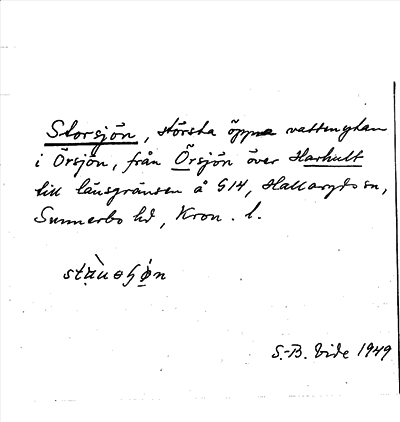 Storsjön, största öppna vattenytan
i Örsjön, från Örsjön över Harhult
till länsgränsen å G14, Hallaryds sn,
Sunnerbo hd, Kron. l.
S.-B. Vide 1949